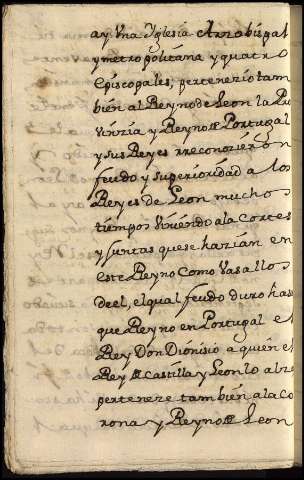 ay Vna Yglesia Arzobispal
y metropolitana y quatro
Episcopales, pertenezio tam
bien al Reyno de Leon la Pro
Vinzia y Reyno de Portugal
y sus Reyes rreconozieron
feudo y superioridad a los
Reyes de Leon muchos
tiempos Viniendo a la Cortes
y juntas que se hazian en
este Reyno Como Vasallos
de el, el qual feudo duro has
que Reyno en Portugal el
Rey Don Dionisio a quien el
Rey de Castilla y Leon lo alzo
perteneze tambien a la Co
rona y Reyno de Leon